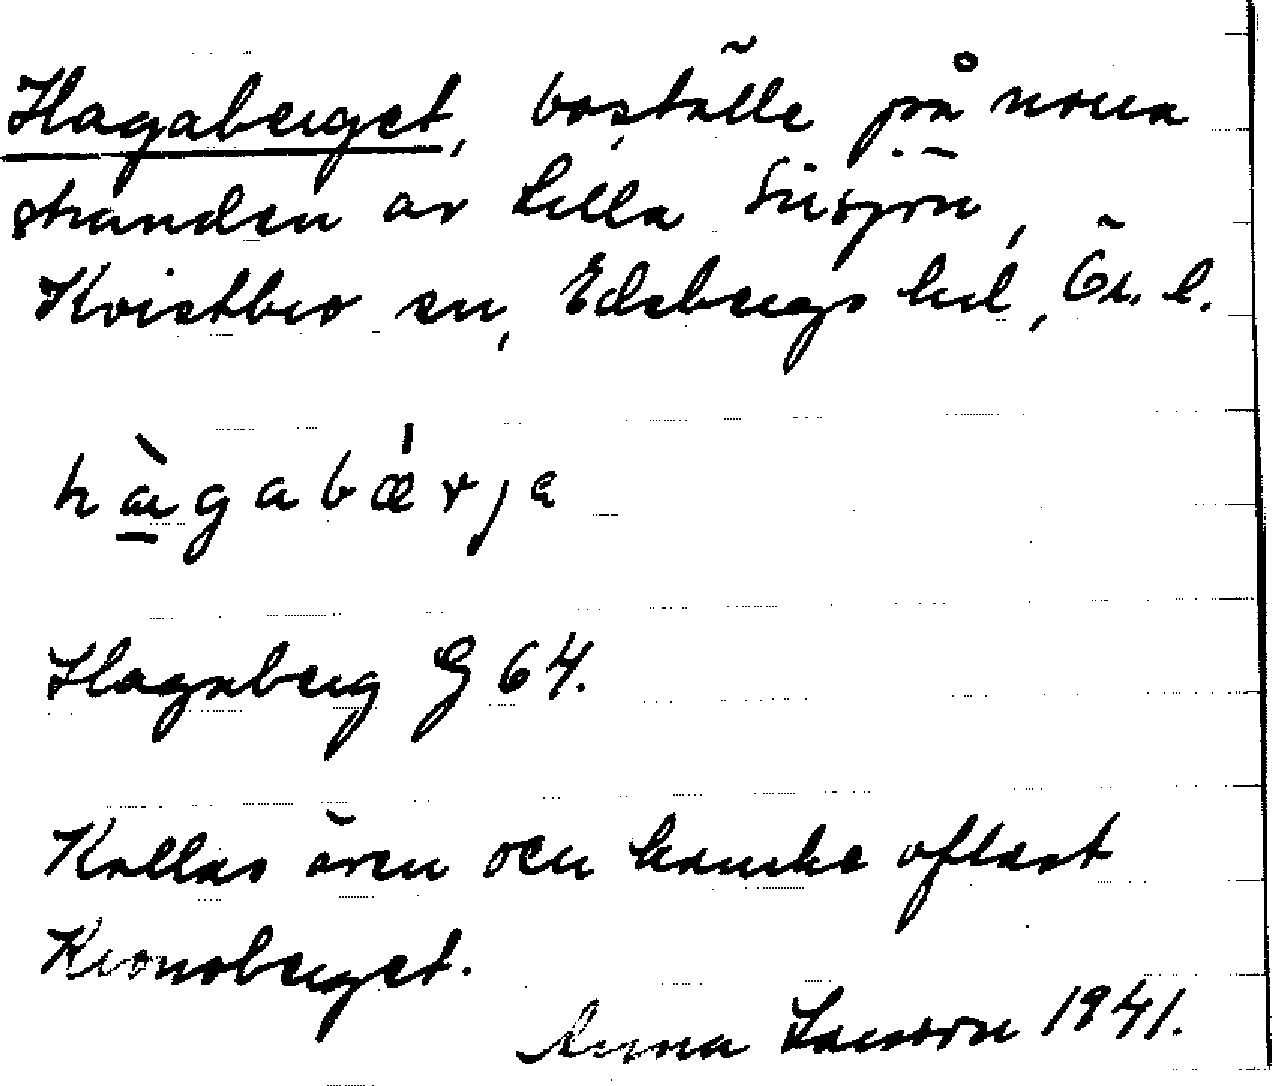 Hagaberget, boställe på norra
stranden av Lilla Sirsjön,
Kvistbro sn, Edsbergs hd, Ör. l.
hàgabǽrja
Hagaberg G 64.
Kallas även och kanske oftast
Kronoberget.
Anna Larsson 1941.